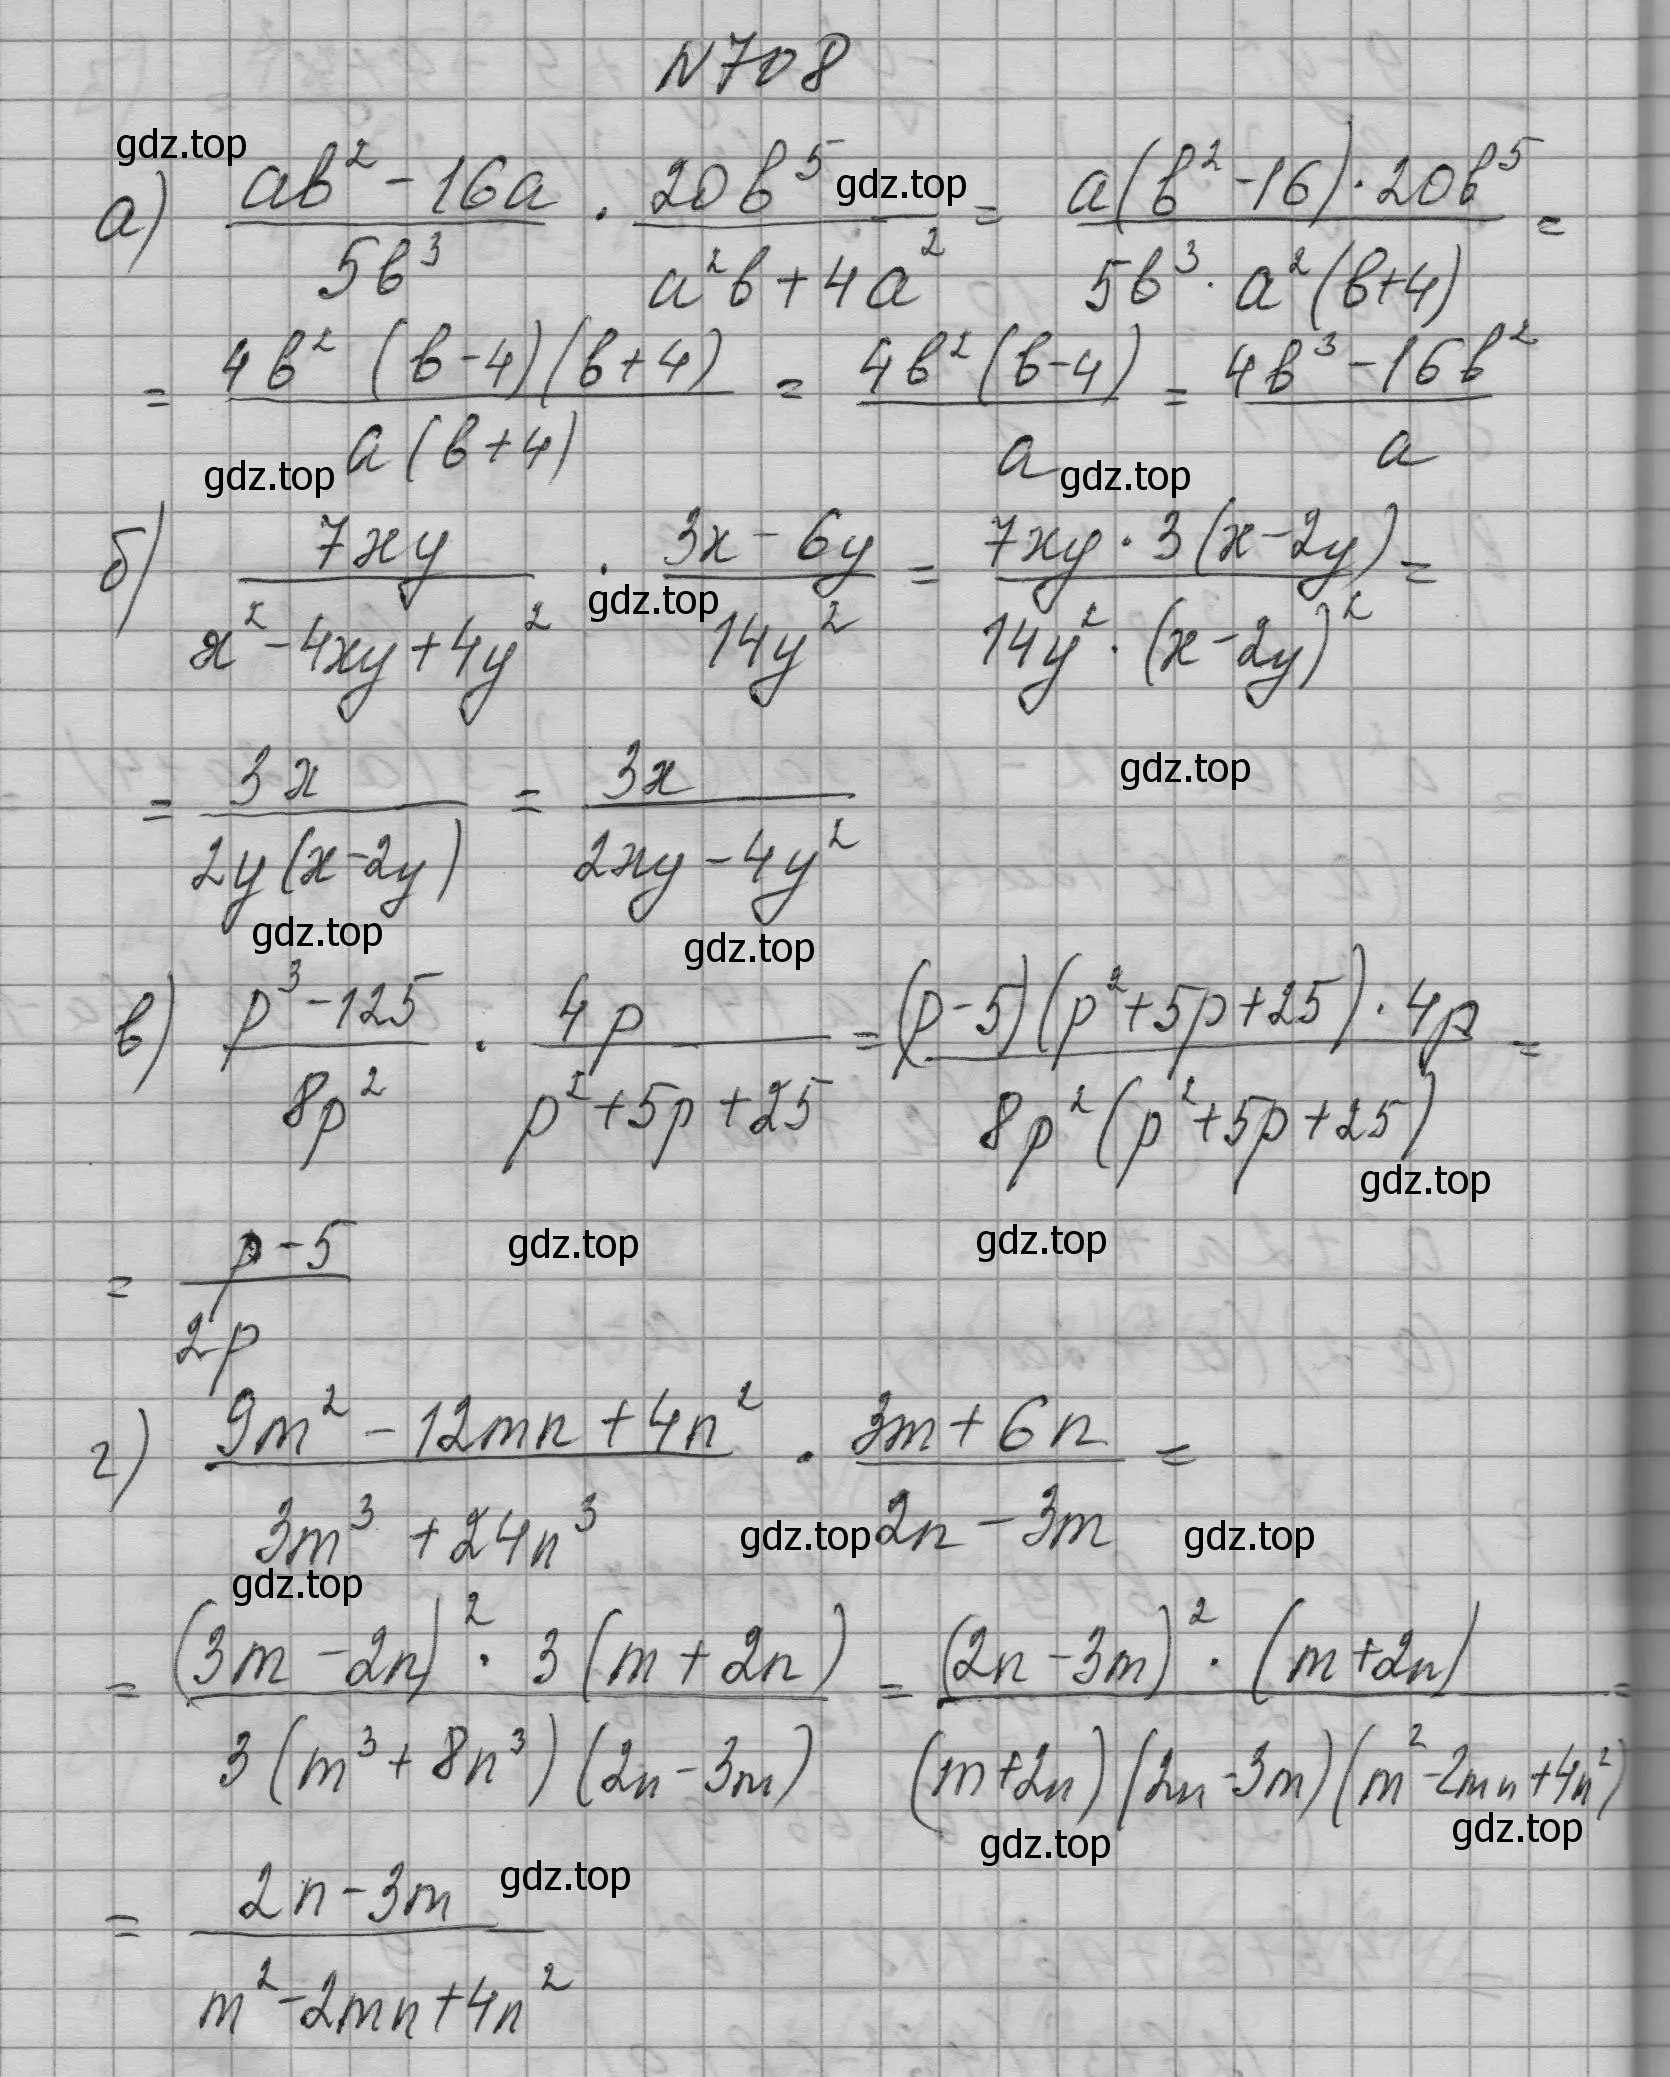 N708
gdz.top
а) (ab² - 16a)/(5b³) · (20b⁵)/(a²b + 4a²) = (a(b² - 16) · 20b⁵)/(5b³ · a²(b+4)) =
gdz.top
= (4b² (b-4)(b+4))/(a(b+4)) = (4b²(b-4))/a = (4b³ - 16b²)/a
gdz.top gdz.top
б) (7xy)/(x² - 4xy + 4y²) · (3x - 6y)/(14y²) = (7xy · 3(x-2y))/(14y² · (x-2y)²) =
gdz.top
= (3x)/(2y(x-2y)) = (3x)/(2xy - 4y²)
gdz.top
gdz.top gdz.top
в) (p³ - 125)/(8p²) · (4p)/(p² + 5p + 25) = ((p-5)(p² + 5p + 25) · 4p)/(8p²(p² + 5p + 25)) =
gdz.top
= (p-5)/(2p)
gdz.top gdz.top
г) (9m² - 12mn + 4n²)/(3m³ + 24n³) · (3m + 6n)/(2n - 3m) =
gdz.top gdz.top
gdz.top
= ((3m - 2n)² · 3(m + 2n))/(3(m³ + 8n³)(2n - 3m)) = ((2n - 3m)² · (m+2n))/((m+2n)(2n-3m)(m² - 2mn + 4n²)) =
gdz.top gdz.top
= (2n - 3m)/(m² - 2mn + 4n²)
gdz.top